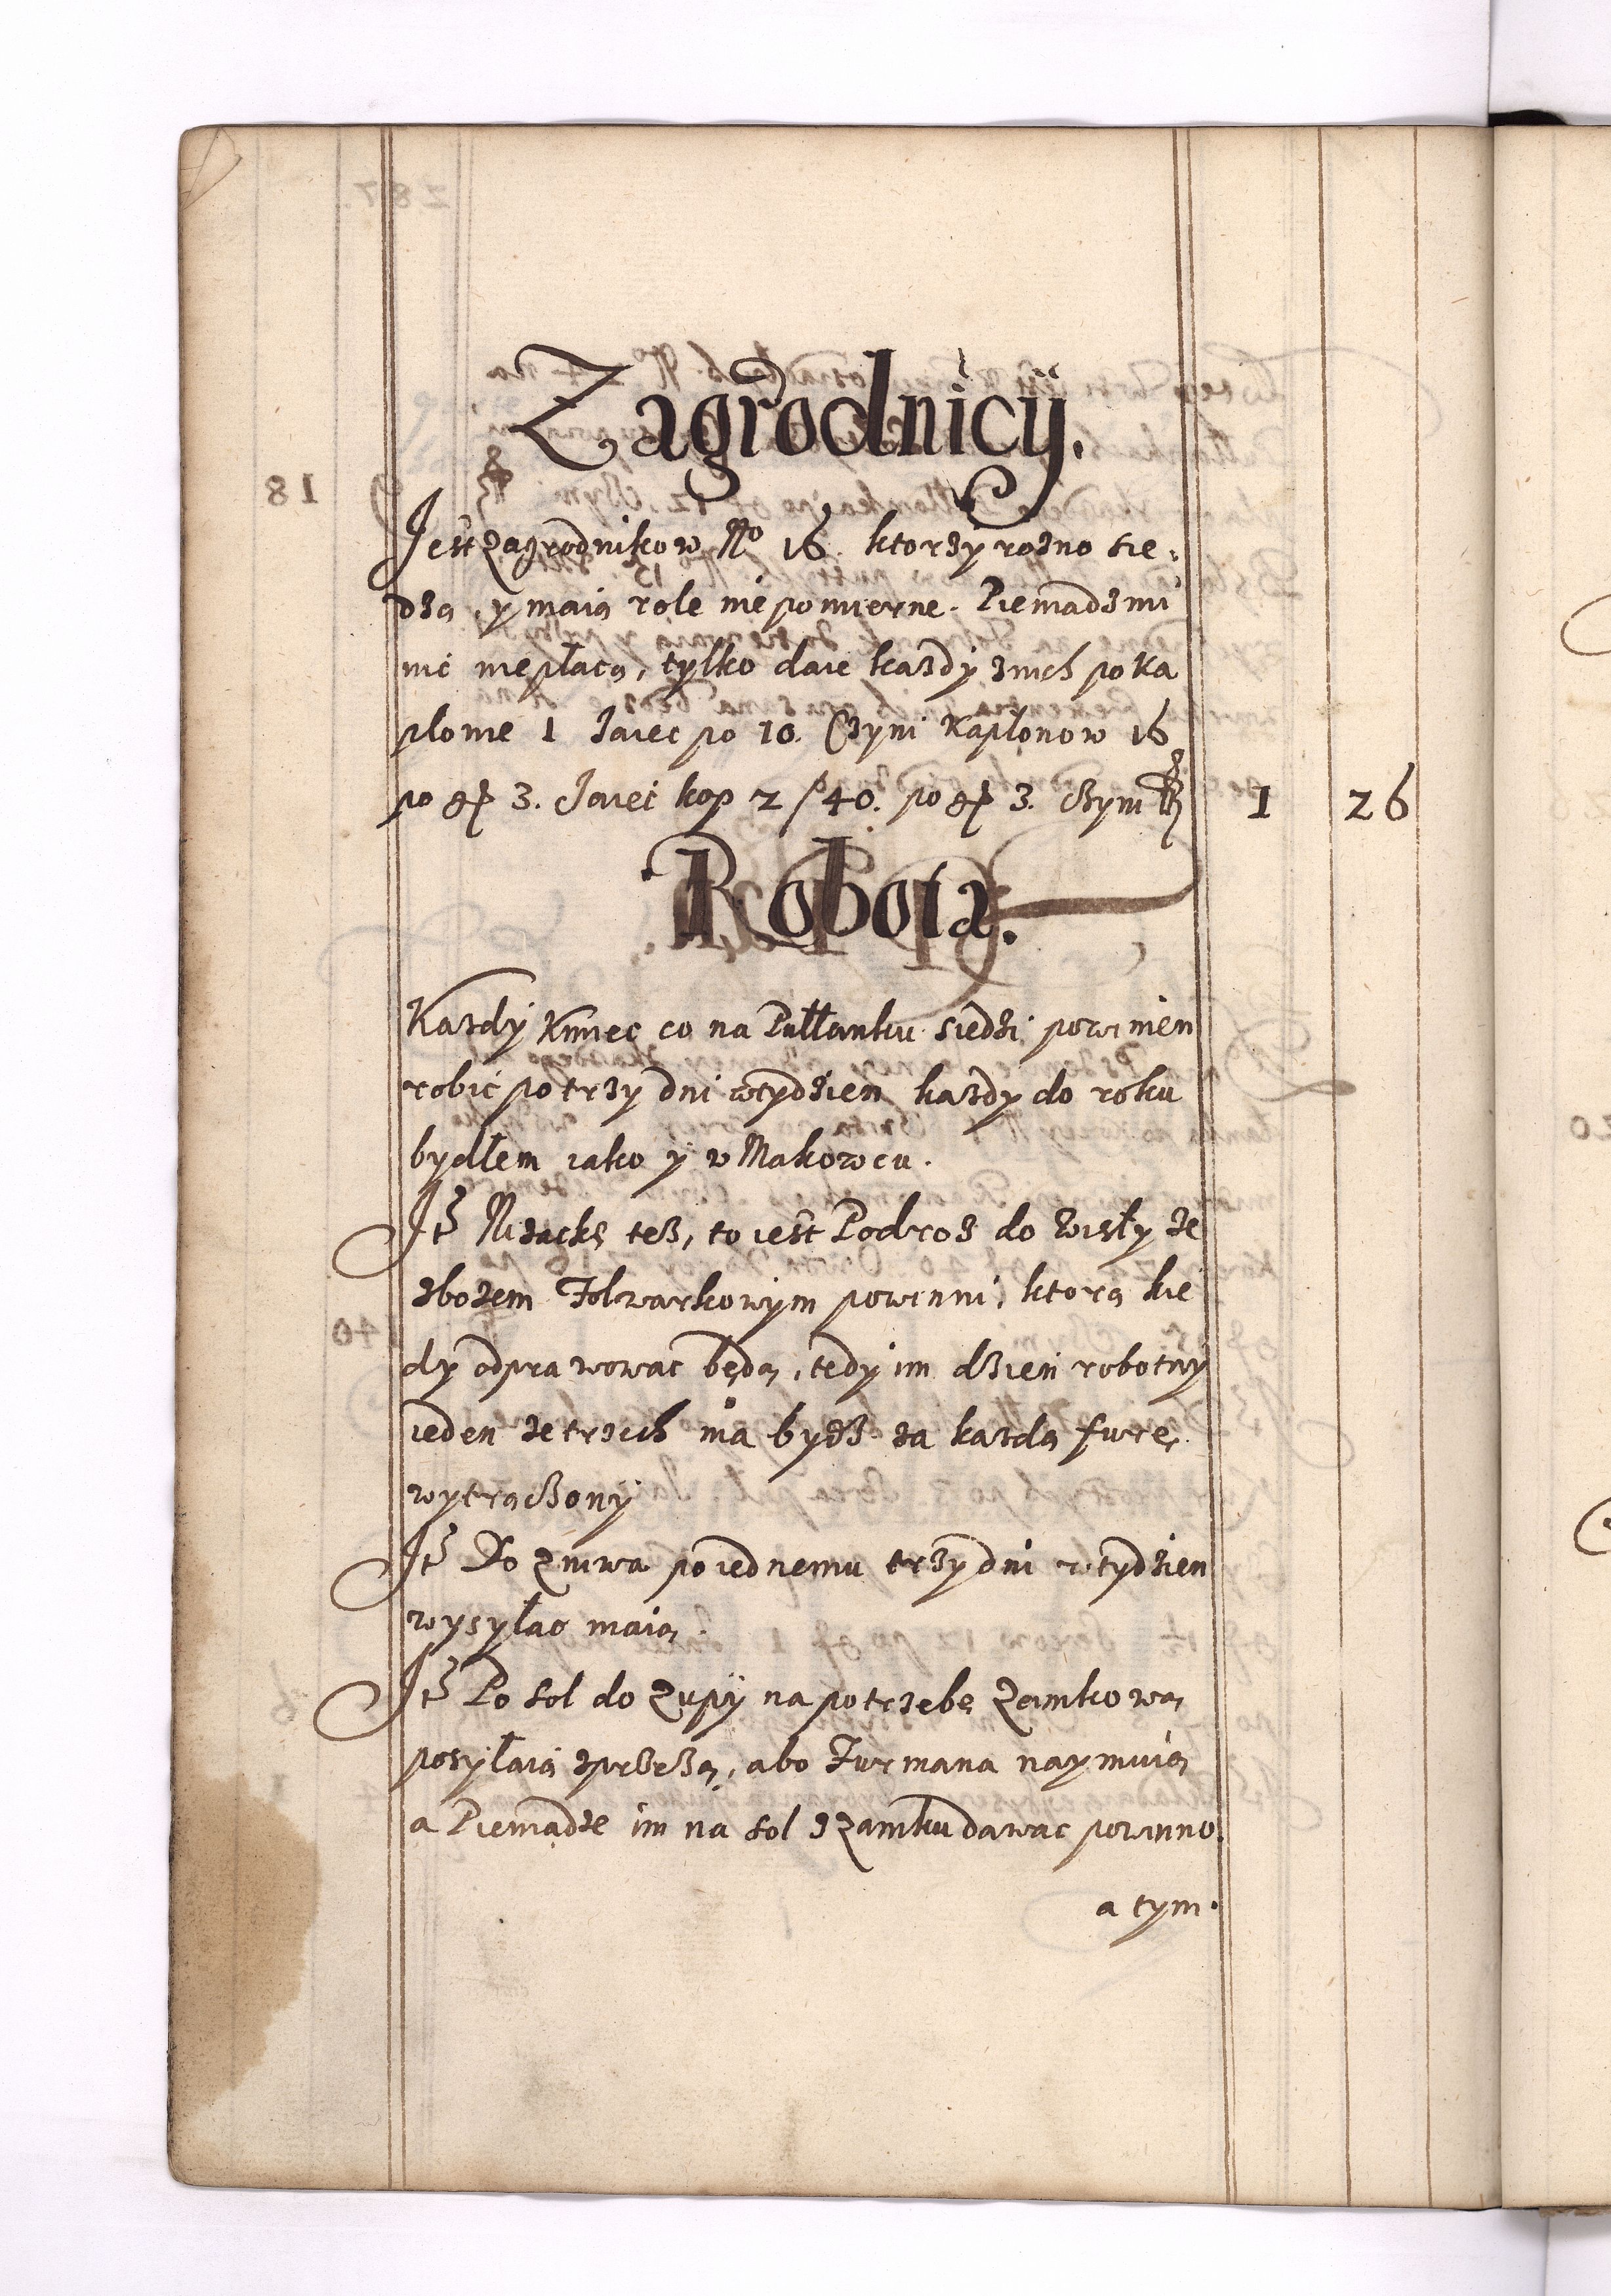 Zagrodnicÿ.
Jest zagrodnikow No 16. ktorzy rozno sie=
dzą, y maią role niepomierne. Pieniadzmi
nic niepłacą, tylko daie każdy znich po Ka
płonie 1 Jaiec po 10. Czyni Kapłonow 16
po gr 3. Jaiec kop 2 / 40. po gr 3. Czyni fl 1 26
Robota.
Kazdÿ Kmiec co na Pułłanku siedzi powinien
robic po trzy dni wtydzien kazdy do roku
bydłem iako ÿ w Makowcu.
Jt Niżackę tesz, to iest Podroz do Wisły ze
zbozem Folwarkowym powinni, ktorą kie
dy odprawowac będą, tedy im dzien robotny
ieden ze trzech ma bydz za kazdą furę
wytrączonÿ
Jt Do Zniwa po iednemu trzy dni w tydzien
wysyłac maią.
Jt Po sol do Zupÿ na potrzebę Zamkową
posyłaią sprzężą, abo Furmana naymuią
a Pieniądze im na sol z Zamku dawac powinno.
a tym.